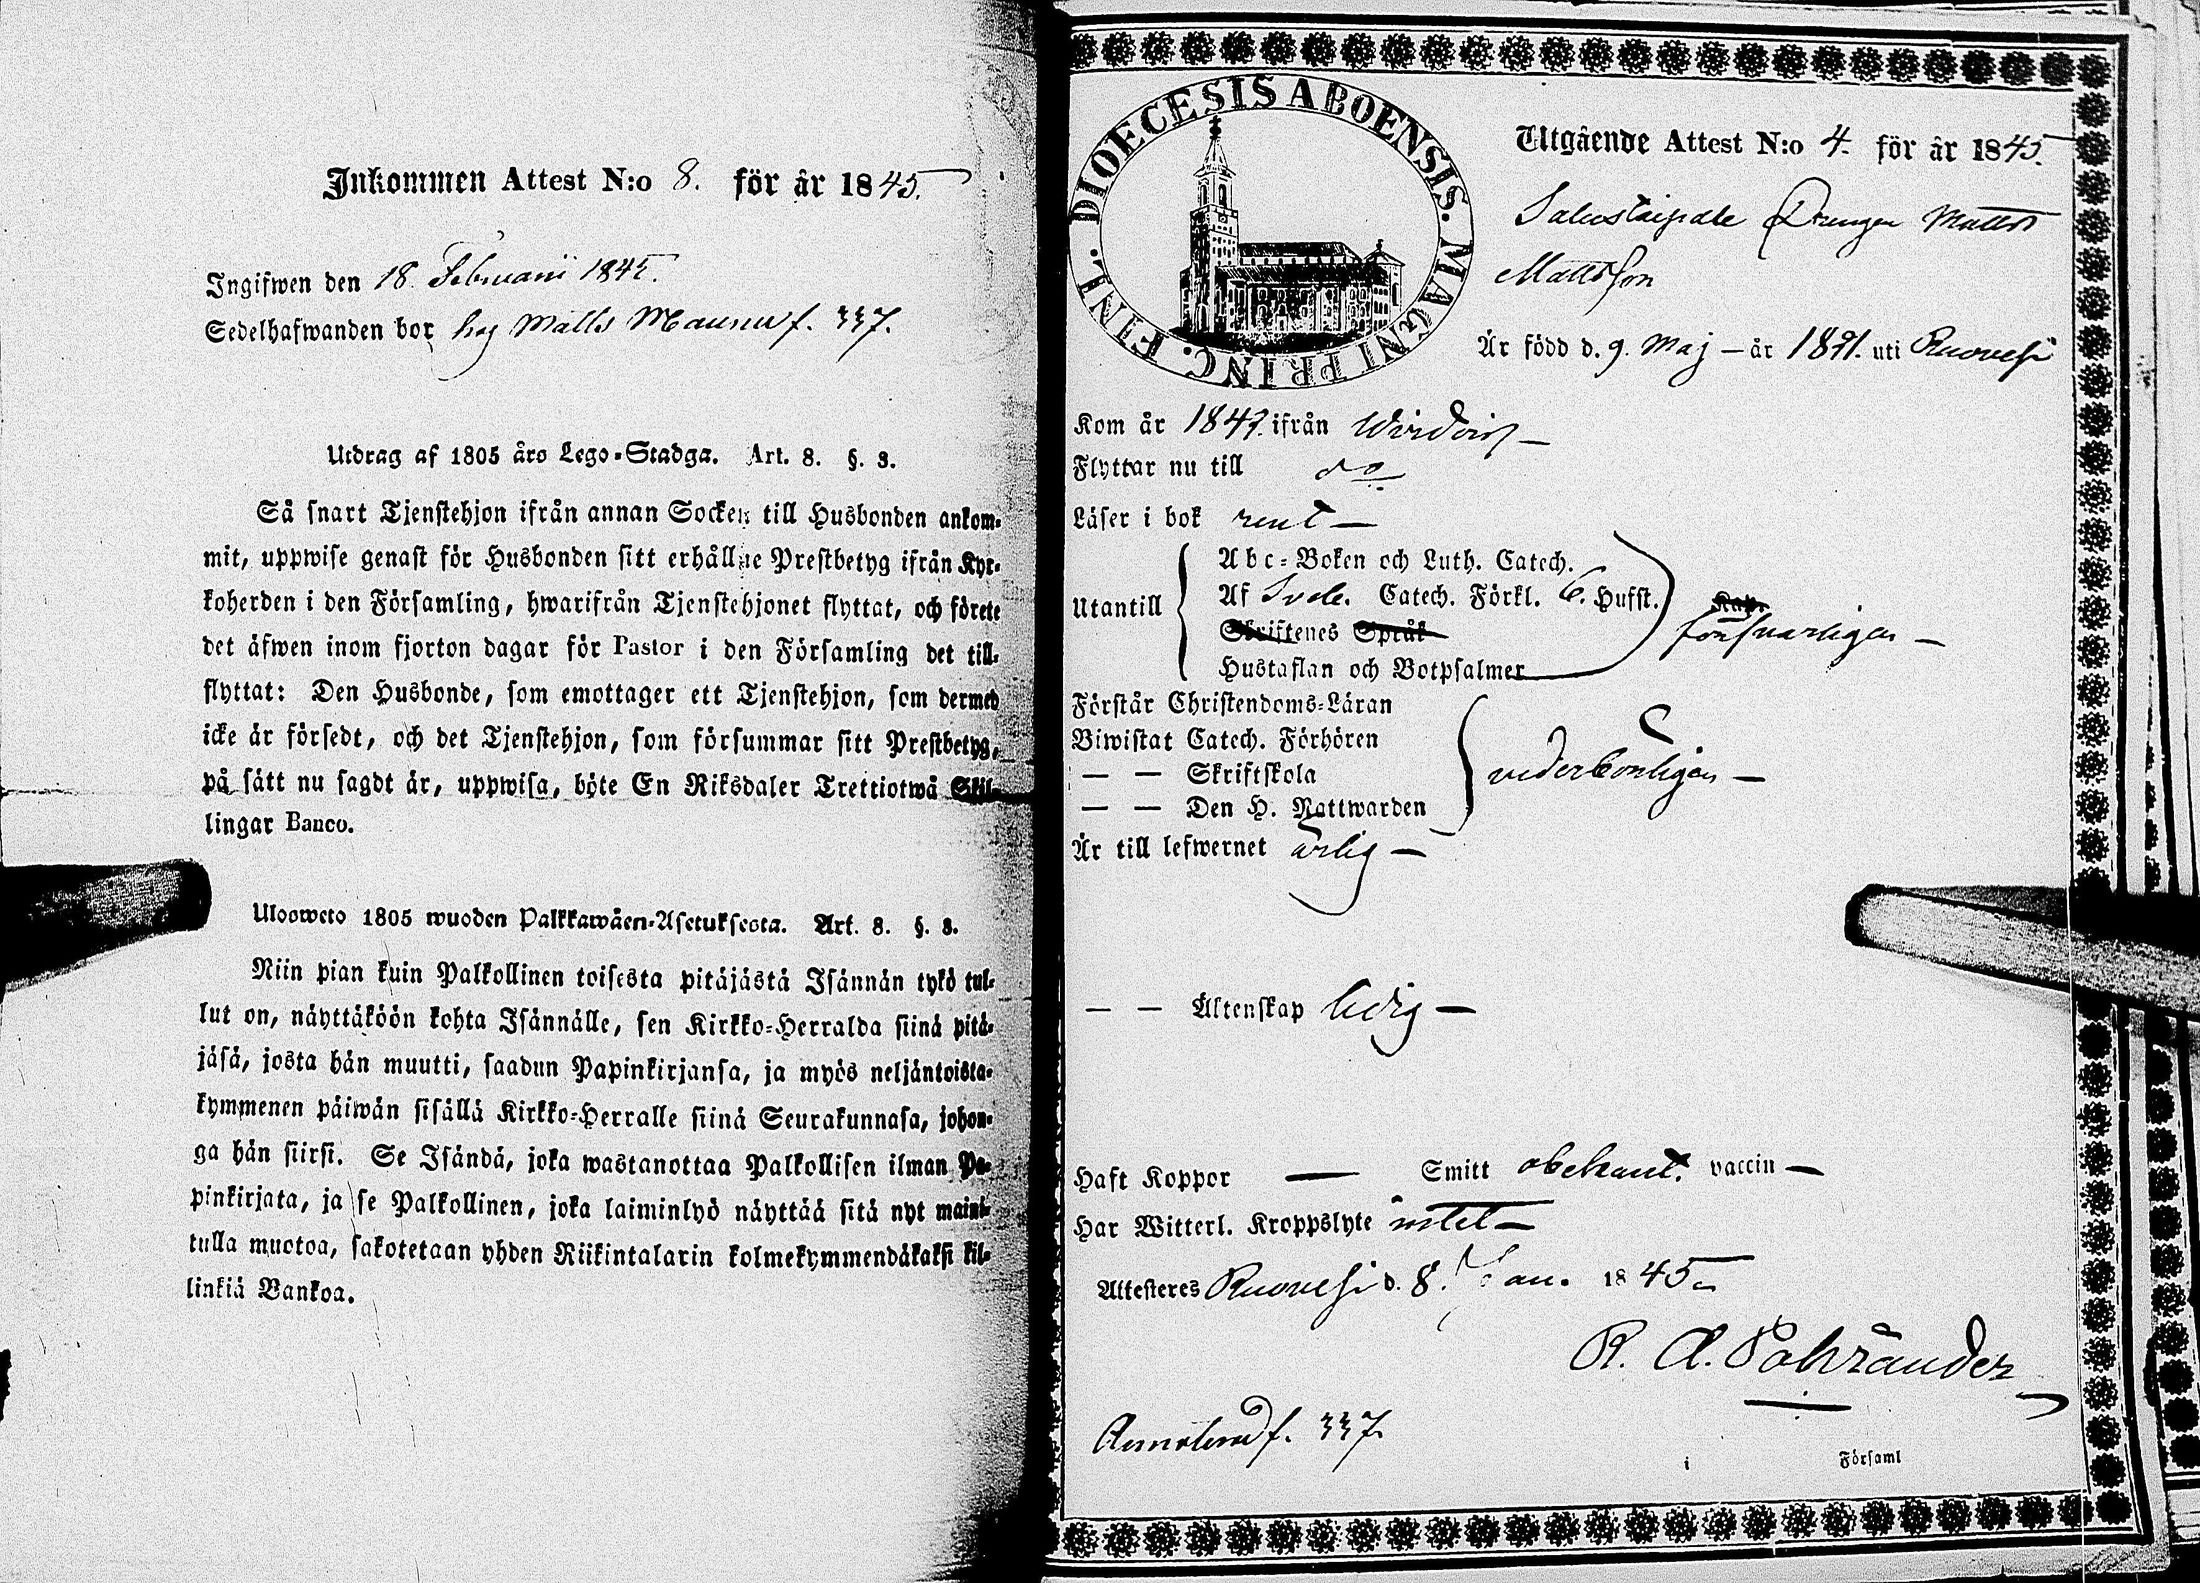 Inkommen Attest N:o 8. för år 1845.
Ingifwen den 18 Februarii 1845.
Sedelhafwanden bor hos Matts f. 337.
Utdrag af 1805 års Lego-Stadga. Art. 8. §. 3.
Så snart Tjenstehjon ifrån annan Socken till Husbonden ankom-
mit, uppwise genast för Husbonden sitt erhållne Prestbetyg ifrån Kyr-
koherden i den Församling, hwarifrån Tjenstehjonet flyttat, och förete
det äfwen inom fjorton dagar för Pastor i den Församling det till-
flyttat: Den Husbonde, som emottager ett Tjenstehjon, som dermed
icke är försedt, och det Tjenstehjon, som försummar sitt Prestbetyg,
på sätt nu sagdt är, uppwisa, böte En Riksdaler Trettiotwå Skil-
lingar Banco.
Ulosweto 1805 wuoden Palkkawäen-Asetuksesta. Art. 8. §. 3.
Niin pian kuin Palkollinen toisesta pitäjästä Isännän tykö tul-
lut on, näyttäköön kohta Isännälle, sen Kirkko-Herralda siinä pitä-
jäsä, josta hän muutti, saadun Papinkirjansa, ja myös neljäntoista-
kymmenen päiwän sisällä Kirkko-Herralle siinä Seurakunnasa, johon-
ga hän siirsi. Se Isändä, joka wastanottaa Palkollisen ilman Pa-
pinkirjata, ja se Palkollinen, joka laiminlyö näyttää sitä nyt maini-
tulla muotoa, sakotetaan yhden Riikintalarin kolmekymmendäkaksi kil-
linkiä Bankoa.
FINL. DIOECESIS ABOENSIS. MAGNI PRINC.
Utgående Attest N:o 4. för år 1845.
Drengen Matts
Mattsson
Är född d. 9. Maj — år 1821. uti Ruovesi
Kom år 1842. ifrån Wirdois —
Flyttar nu till do
Läser i bok rent —
Utantill
Abc-Boken och Luth. Catech.
Af Sveb. Catech. Förkl. 6. Hufst. Kap.
Skriftenes Språk
försvarligen —
Hustaflan och Botpsalmer
Förstår Christendoms-Läran
Biwistat Catech. Förhören
— — Skriftskola
vederbörligen —
— — Den H. Nattwarden
Är till lefwernet ärlig —
— — Äktenskap ledig —
Haft Koppor — Smitt obekant. vaccin —
Har Witterl. Kroppslyte intet —
Attesteras Ruovesi d. 8. Jan. 1845
R. A.
f. 337.
i Församl